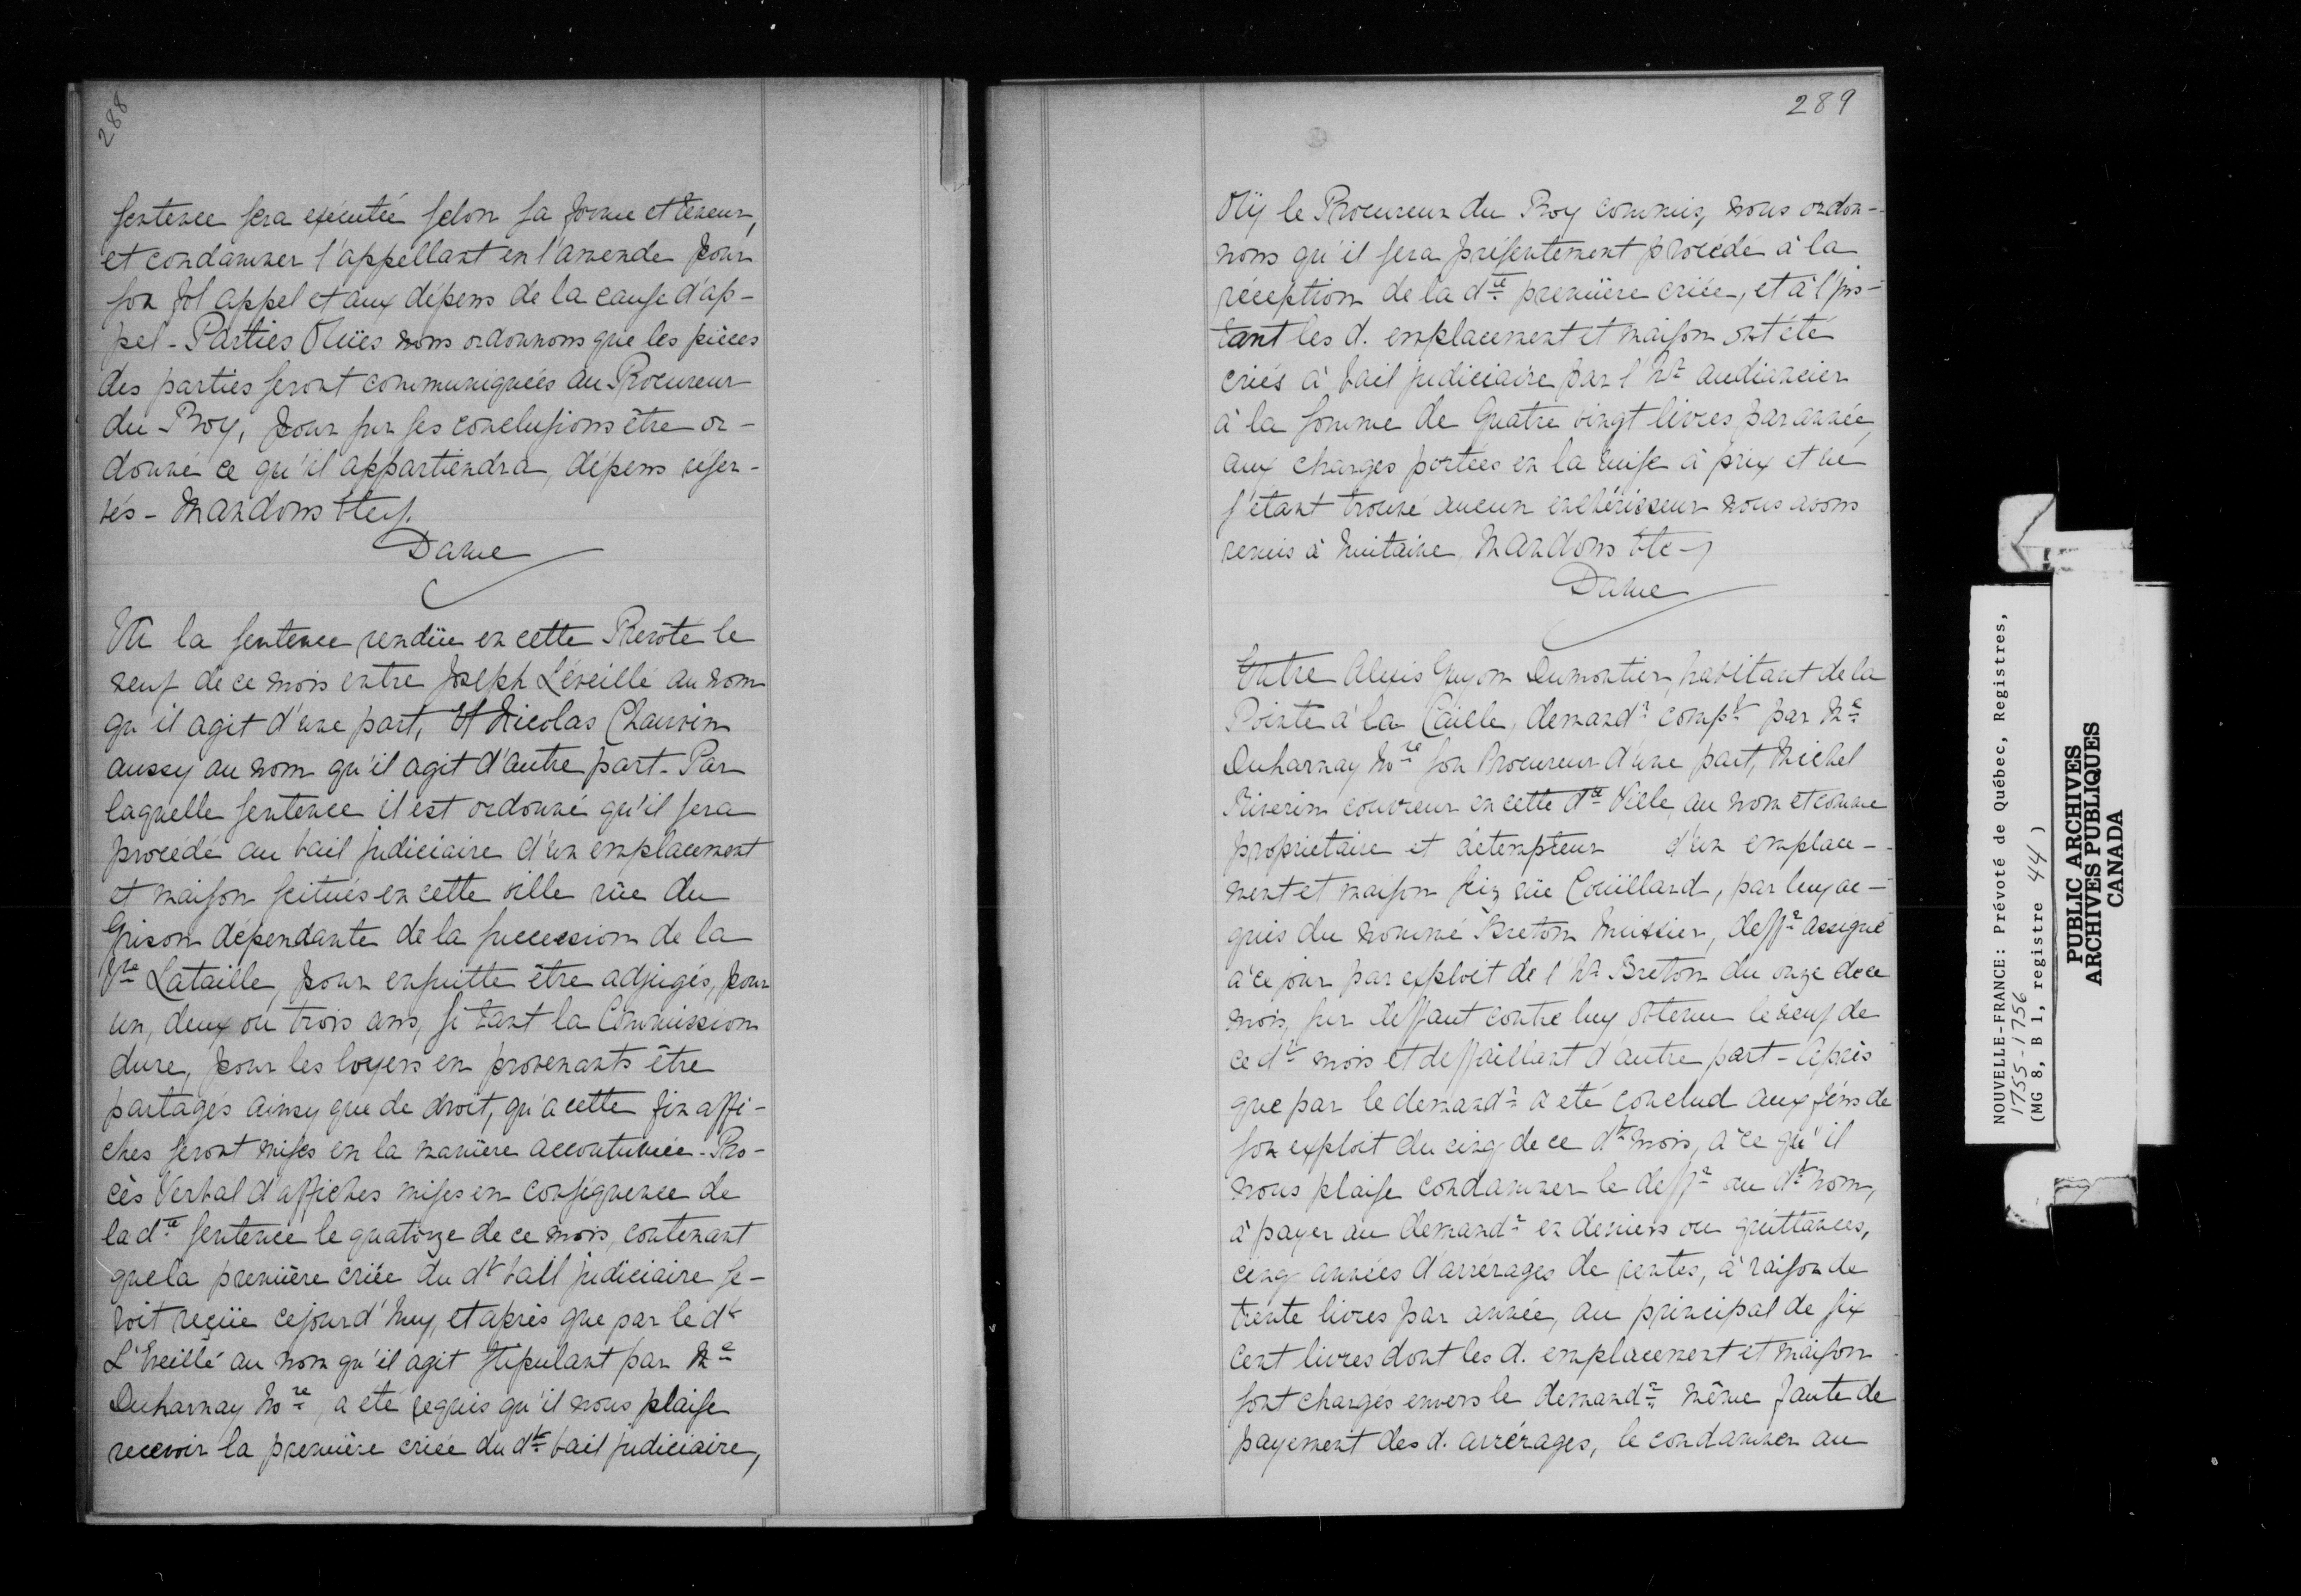 288
sentence sera exécutée selon sa forme et teneur,
et condamner l'appellant en l'amende pour
son fol appel et aux dépens de la cause d'ap-
pel - Parties Oüies nous ordonnons que les pièces
des parties seront communiquées au Procureur
du Roy, pour sur ses conclusions être or-
donné ce qu'il appartiendra, dépens reser-
vés - Mandons &tc/.
Daine
Vû la sentence rendüe en cette Prevôté le
neuf de ce mois entre Joseph L'éveillé au nom
qu'il agit d'une part, Et Nicolas Chauvin
aussy au nom qu'il agit d'autre part - Par
laquelle sentence il est ordonné qu'il sera
procédé au bail judiciaire d'un emplacement
et maison scitués en cette ville rüe du
Grison dépendante de la succession de la
Vve Lataille, pour ensuitte être adjugés, pour
un, deux ou trois ans, si tant la Commission
dure, pour les loyers en provenants être
partagés ainsy que de droit, qu'a cette fin affi-
ches seront mises en la manière accoutumée - Pro-
cès Verbal d'affiches mises en conséquence de
la dte sentence le quatorze de ce mois, contenant
que la première criée du dt bail judiciaire se-
roit reçüe cejourd'huy, et après que par le dt
L'Eveillé au nom qu'il agit stipulant par Me
Duharnay Nore, a eté requis qu'il nous plaise
recevoir la première criée du dt bail judiciaire,
289
Oüy le Procureur du Roy commis, nous ordon-
nons qu'il sera présentement procédé à la
réception de la dte première criée, et à l'ins-
tant les d. emplacement et maison ont été
criés à bail judiciaire par l'hr audiancier
à la somme de Quatre vingt livres par année,
aux charges portées en la mise à prix et ne
s'étant trouvé aucun enchérisseur nous avons
remis à huitaine, Mandons &tc/
Daine
Entre Alexis Guyon Dumontier, habitant de la
Pointe à la Caille, demandr compt par Me
Duharnay Nore son Procureur d'une part, Michel
Riverin couvreur en cette dte Ville, au nom et comme
proprietaire et détempteur d'un emplace-
ment et maison sis rüe Coüillard, par luy ac-
quis du nommé Breton huissier, deffr assigné
à ce jour par exploit de l'hr Breton du onze de ce
mois, sur deffaut contre luy obtenu le neuf de
ce dt mois et deffaillant d'autre part - Après
que par le demandr a eté conclud aux fins de
son exploit du cinq de ce dt mois, à ce qu'il
nous plaise condamner le deffr au dt nom,
à payer au demandr en deniers ou quittances,
cinq années d'arrérages de rentes, à raison de
trente livres par année, au principal de six
Cent livres dont les d. emplacement et maison
sont chargés envers le demandr même faute de
payement des d. arrérages, le condamner au
NOUVELLE-FRANCE: Prévoté de Québec, Registres,
1755-1756
(MG 8, B 1, registre 44)
PUBLIC ARCHIVES
ARCHIVES PUBLIQUES
CANADA